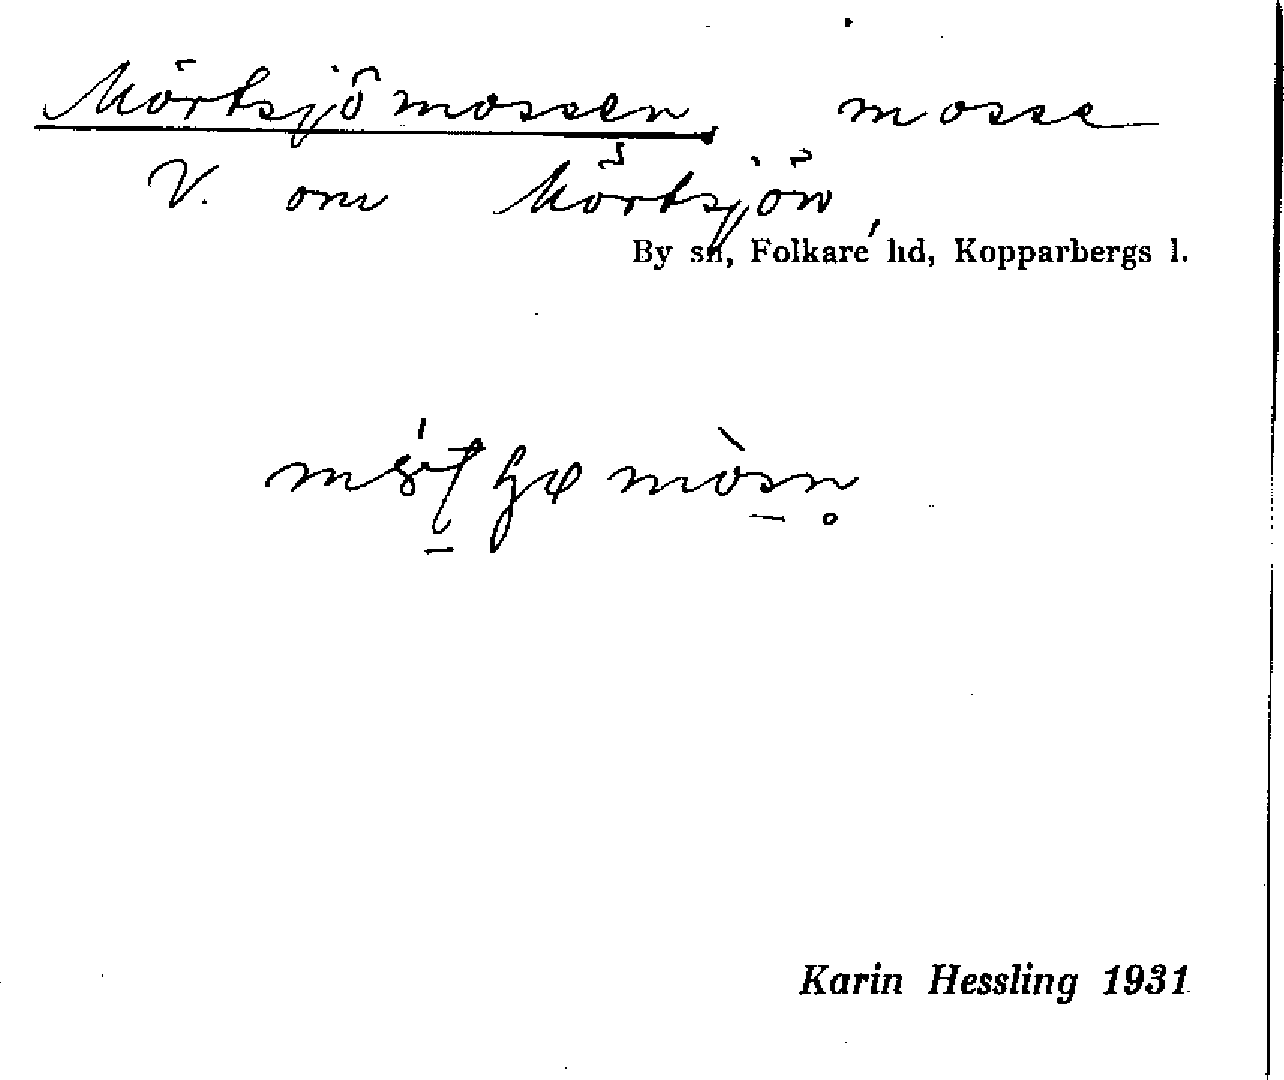 Mörtsjömossen mosse
V. om Mörtsjön
By sn, Folkare hd, Kopparbergs l.
Karin Hessling 1931